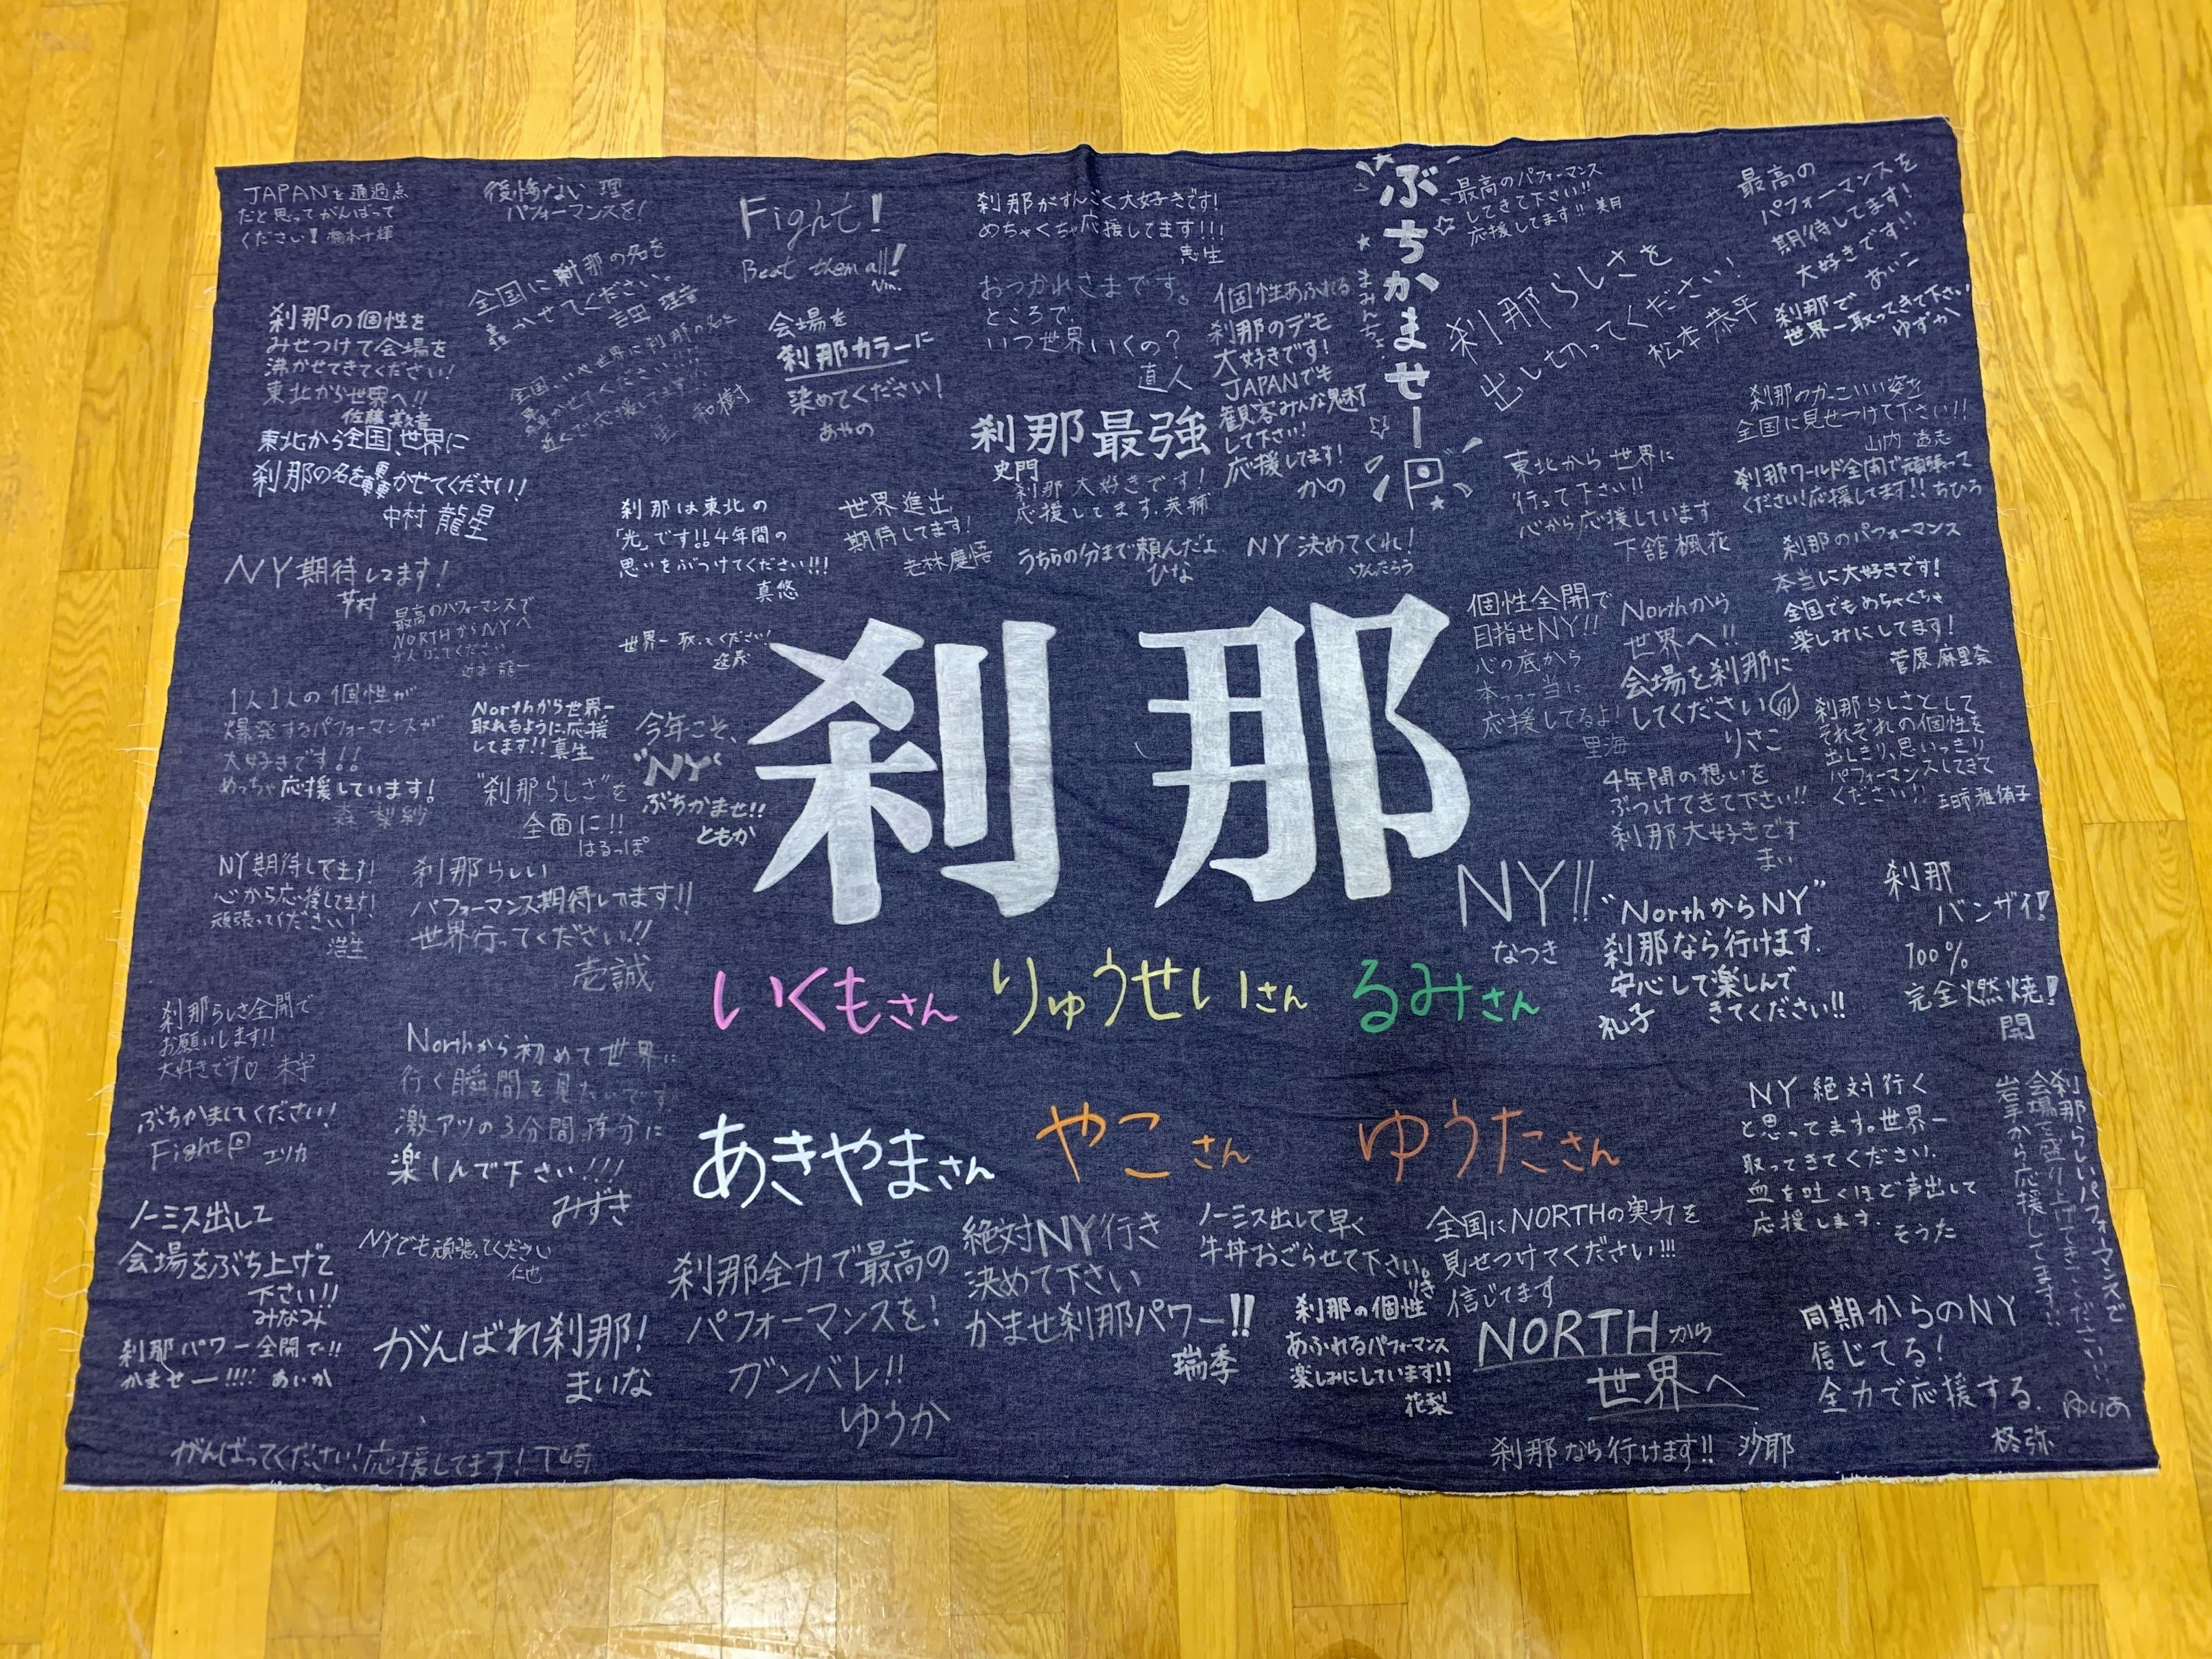 JAPANを通過点
だと思ってがんばって
ください!
後悔ない
パフォーマンスを!
理
Fight!
Beat them all!
刹那がすんごく大好きです!
めちゃくちゃ応援してます!!!
恵生
ぶちかませー
まみんちょ
最高のパフォーマンス
してきて下さい!!
応援してます!! 美月
最高の
パフォーマンスを
期待してます!
大好きです!!
あいこ
刹那で
世界一取ってきて下さい
ゆずか
全国に刹那の名を
轟かせてください。
吉田
全国、いや世界に刹那の名を
轟かせてください!!!!
近くで応援してます!!
和樹
会場を
刹那カラーに
染めてください!
あやの
おつかれさまです。
ところで、
いつ世界いくの?
直人
個性あふれる
刹那のデモ
大好きです!
JAPANでも
観客みんな魅了
して下さい!
応援してます!
かの
刹那らしさを
出し切ってください!
松本恭平
刹那の個性を
みせつけて会場を
沸かせてきてください!
東北から世界へ!!
佐藤
東北から全国、世界に
刹那の名を轟かせてください!
中村 龍星
刹那最強
史門
刹那大好きです!
応援してます。英輔
刹那のかっこいい姿を
全国に見せつけて下さい!!
山内
刹那ワールド全開で頑張って
ください!応援してます!! ちひろ
東北から世界に
行って下さい!!
心から応援しています
下舘楓花
刹那は東北の
「光」です!!4年間の
思いをぶつけてください!!!
真悠
世界進出
期待してます!
老林慶悟
うちらの分まで頼んだよ
ひな
NY決めてくれ!
けんたろう
刹那のパフォーマンス
本当に大好きです!
全国でもめちゃくちゃ
楽しみにしてます!
菅原麻里奈
NY期待してます!
芋村
最高のパフォーマンスで
NORTHからNYへ
がんばってください
世界一取ってください!
個性全開で
目指せNY!!
心の底から
本っっっ当に
応援してるよ!
里海
Northから
世界へ!!
会場を刹那に
してください
りさこ
刹那
1人1人の個性が
爆発するパフォーマンスが
大好きです!!
めっちゃ応援しています!
森 梨紗
Northから世界一
取れるように、応援
してます!! 真生
今年こそ、
"NY"
ぶちかませ!!
ともか
"刹那らしさ"を
全面に!!
はるっぽ
刹那らしさとして
それぞれの個性を
出しきり、思いっきり
パフォーマンスしてきて
ください!!
4年間の想いを
ぶつけてきて下さい!!
刹那大好きです
まい
NY期待してます!
心から応援してます!
頑張ってください!
浩生
刹那らしい
パフォーマンス期待してます!!
世界行ってください!!
壱誠
NY!!
なつき
"NorthからNY"
刹那なら行けます.
安心して楽しんで
きてください!!
礼子
刹那
バンザイ!
100%
完全燃焼!
開
いくもさん りゅうせいさん るみさん
あきやまさん やこさん ゆうたさん
刹那らしさ全開で
お願いします!!
大好きです♡ 未宇
ぶちかましてください!
Fight エリカ
Northから初めて世界に
行く瞬間を見たいです
激アツの3分間存分に
楽しんで下さい!!!
みずき
NY絶対行く
と思ってます。世界一
取ってきてください.
血を吐くほど声出して
応援します.
そうた
刹那らしいパフォーマンスで
会場を盛り上げてきてください!!
岩手から応援してます!!
ゆりあ
ノーミス出して
会場をぶち上げて
下さい!!
みなみ
NYでも頑張ってください
仁也
刹那全力で最高の
パフォーマンスを!
ガンバレ!!
ゆうか
絶対NY行き
決めて下さい
かませ刹那パワー!!
瑞季
ノーミス出して早く
牛丼おごらせて下さい。
全国にNORTHの実力を
見せつけてください!!!
信じてます
刹那の個性
あふれるパフォーマンス
楽しみにしています!!
花梨
NORTHから
世界へ
同期からのNY
信じてる!
全力で応援する.
柊弥
刹那パワー全開で!!
かませー!!!! あいか
がんばれ刹那!
まいな
がんばってください!応援してます!下崎
刹那なら行けます!! 沙耶